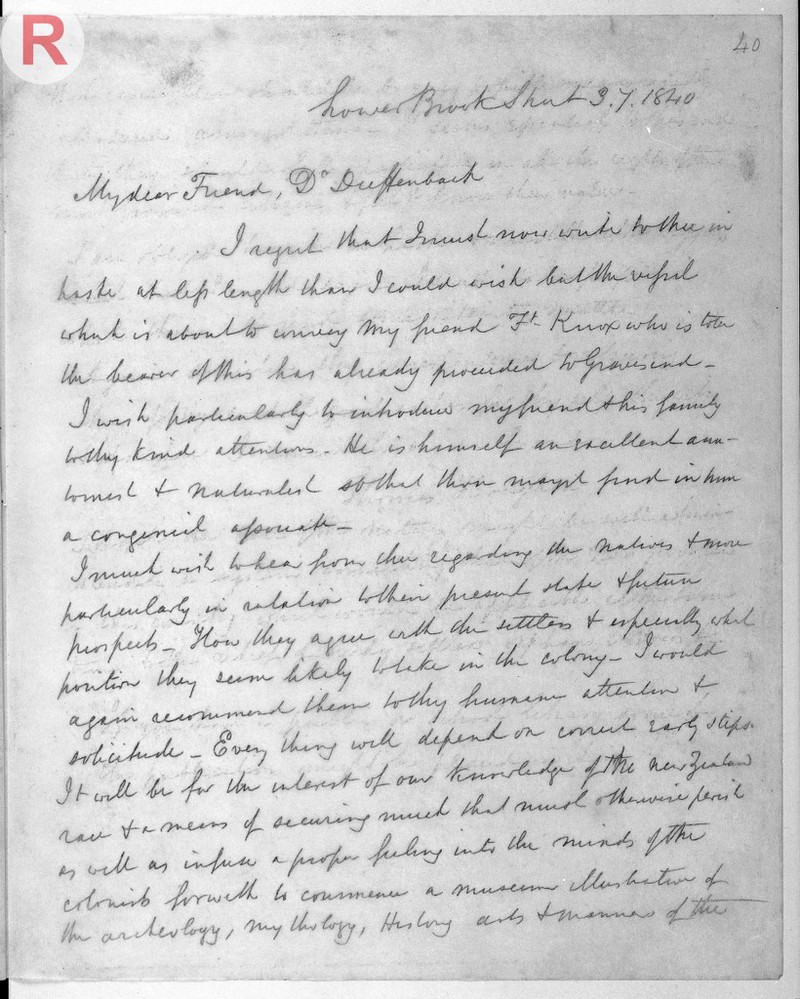 R
40
Lower Brook Street 3.7.1840
My dear Friend, Dr Dieffenbach
I regret that I must now write to thee in
haste at less length than I could wish but the vessel
which is about to convey my friend Fk Knox who is to be
the bearer of this has already proceeded to Gravesend -
I wish particularly to introduce my friend & his family
to thy kind attentions - He is himself an excellent ana-
tomist & naturalist so that thou mayst find in him
a congenial associate -
I much wish to hear from thee regarding the natives & more
particularly in relation to their present state & future
prospects - How they agree with the settlers & especially what
position they seem likely to take in the colony - I would
again recommend them to thy humane attention &
solicitude - Every thing will depend on correct early steps.
It will be for the interest of our knowledge of the New Zealand
race & a means of securing much that must otherwise perish
as well as infuse a proper feeling into the minds of the
colonists forwith to commence a museum illustrative of
the archeology, mythology, History arts & manners of the